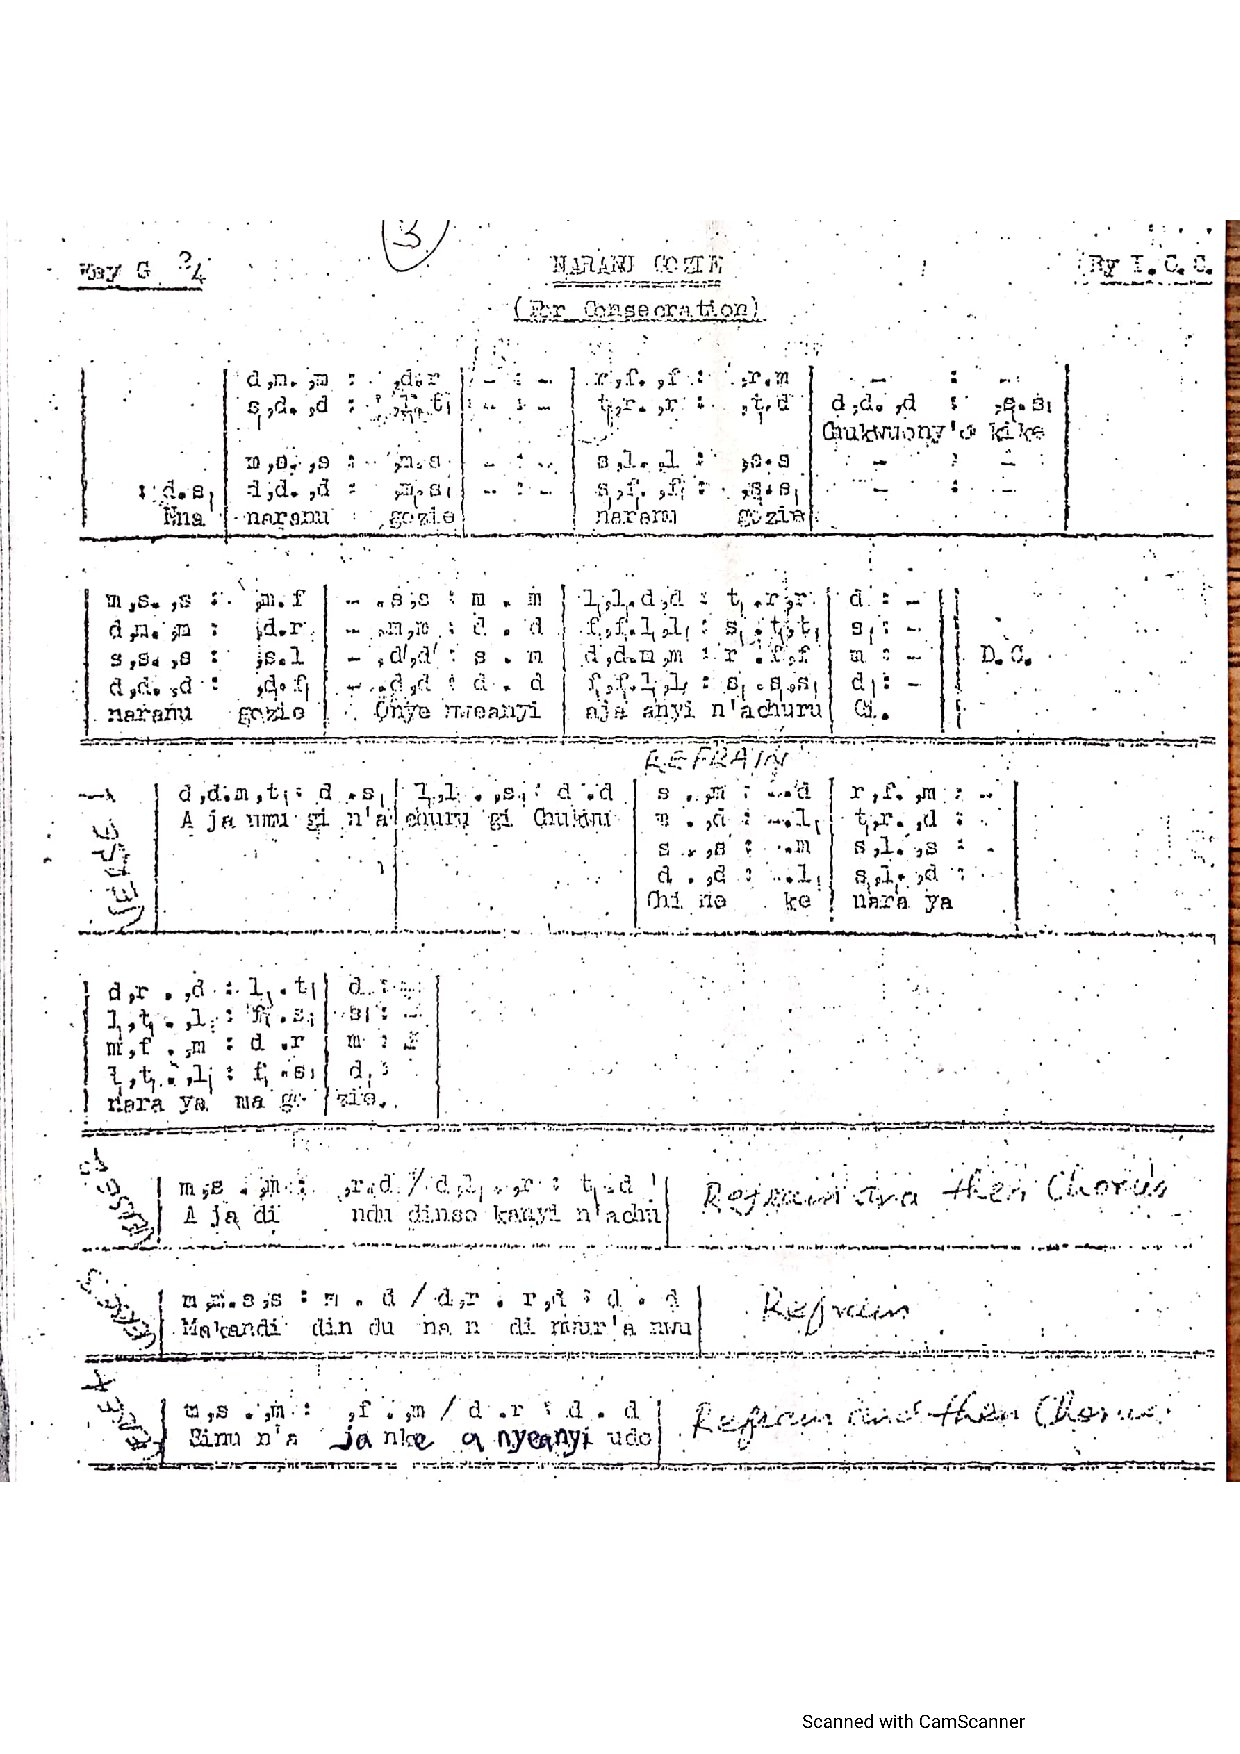 3
Key G 2/4 NARANU GOZIE By I. C. C.
(For Consecration)
d,m. ,m : ,d.r - : - r,f. ,f : ,r.m - : -
s,d. ,d : - : - t,r. ,r : ,t.d d,d. ,d : ,s.s,
Chukwuony'o kike
m,s. ,s : ,m.s - : - s,l. ,l : ,s.s - : -
: d.s, d,d. ,d : ,m.s, - : - s,f. ,f : ,s.s, - : -
Nna naranu gozie naranu gozie
m,s. ,s : ,m.f - .s,s : m . m l,l.d,d : t, .r,r d : -
d,m. ,m : ,d.r - .m,m : d . d f,f.l,l, : s, .t,t, s, : -
s,s. ,s : ,s.l - .d',d' : s . m d',d.m,m : r .f,f m : - D. C.
d,d. ,d : ,d.f, - .d,d : d . d f,f.l,l, : s, .s,s, d, : -
naranu gozie Onye nweanyi aja anyi n'achuru Gi.
REFRAIN
1 d,d.m,t, : d .s, l,l. ,s, : d .d s . ,m : -.d r,f. ,m : -
VERSE A ja umu gi n'a churu gi Chukwu m . ,d : -.l, t,r. ,d : -
s . ,s : -.m s,l. ,s : -
d . ,d : -.l, s,l. ,d : -
Chi ne ke nara ya
d,r . ,d : l, .t, d : -
l,t, . ,l, : f, .s, s, : -
m,f . ,m : d .r m : -
l,t, . ,l, : f, .s, d, :
nara ya ma go zie.
m,s . ,m : ,r.d / d,l, . ,r : t, .d Refrain and then Chorus
A ja di ndu dinso kanyi n'achu
m,m.s,s : m . d / d,r . r,d : d . d Refrain
Makandi din du na n di nwur'a nwu
m,s . ,m : ,f . ,m / d .r : d . d Refrain and then Chorus
Sinu n'a ja nke a nyeanyi udo
Scanned with CamScanner